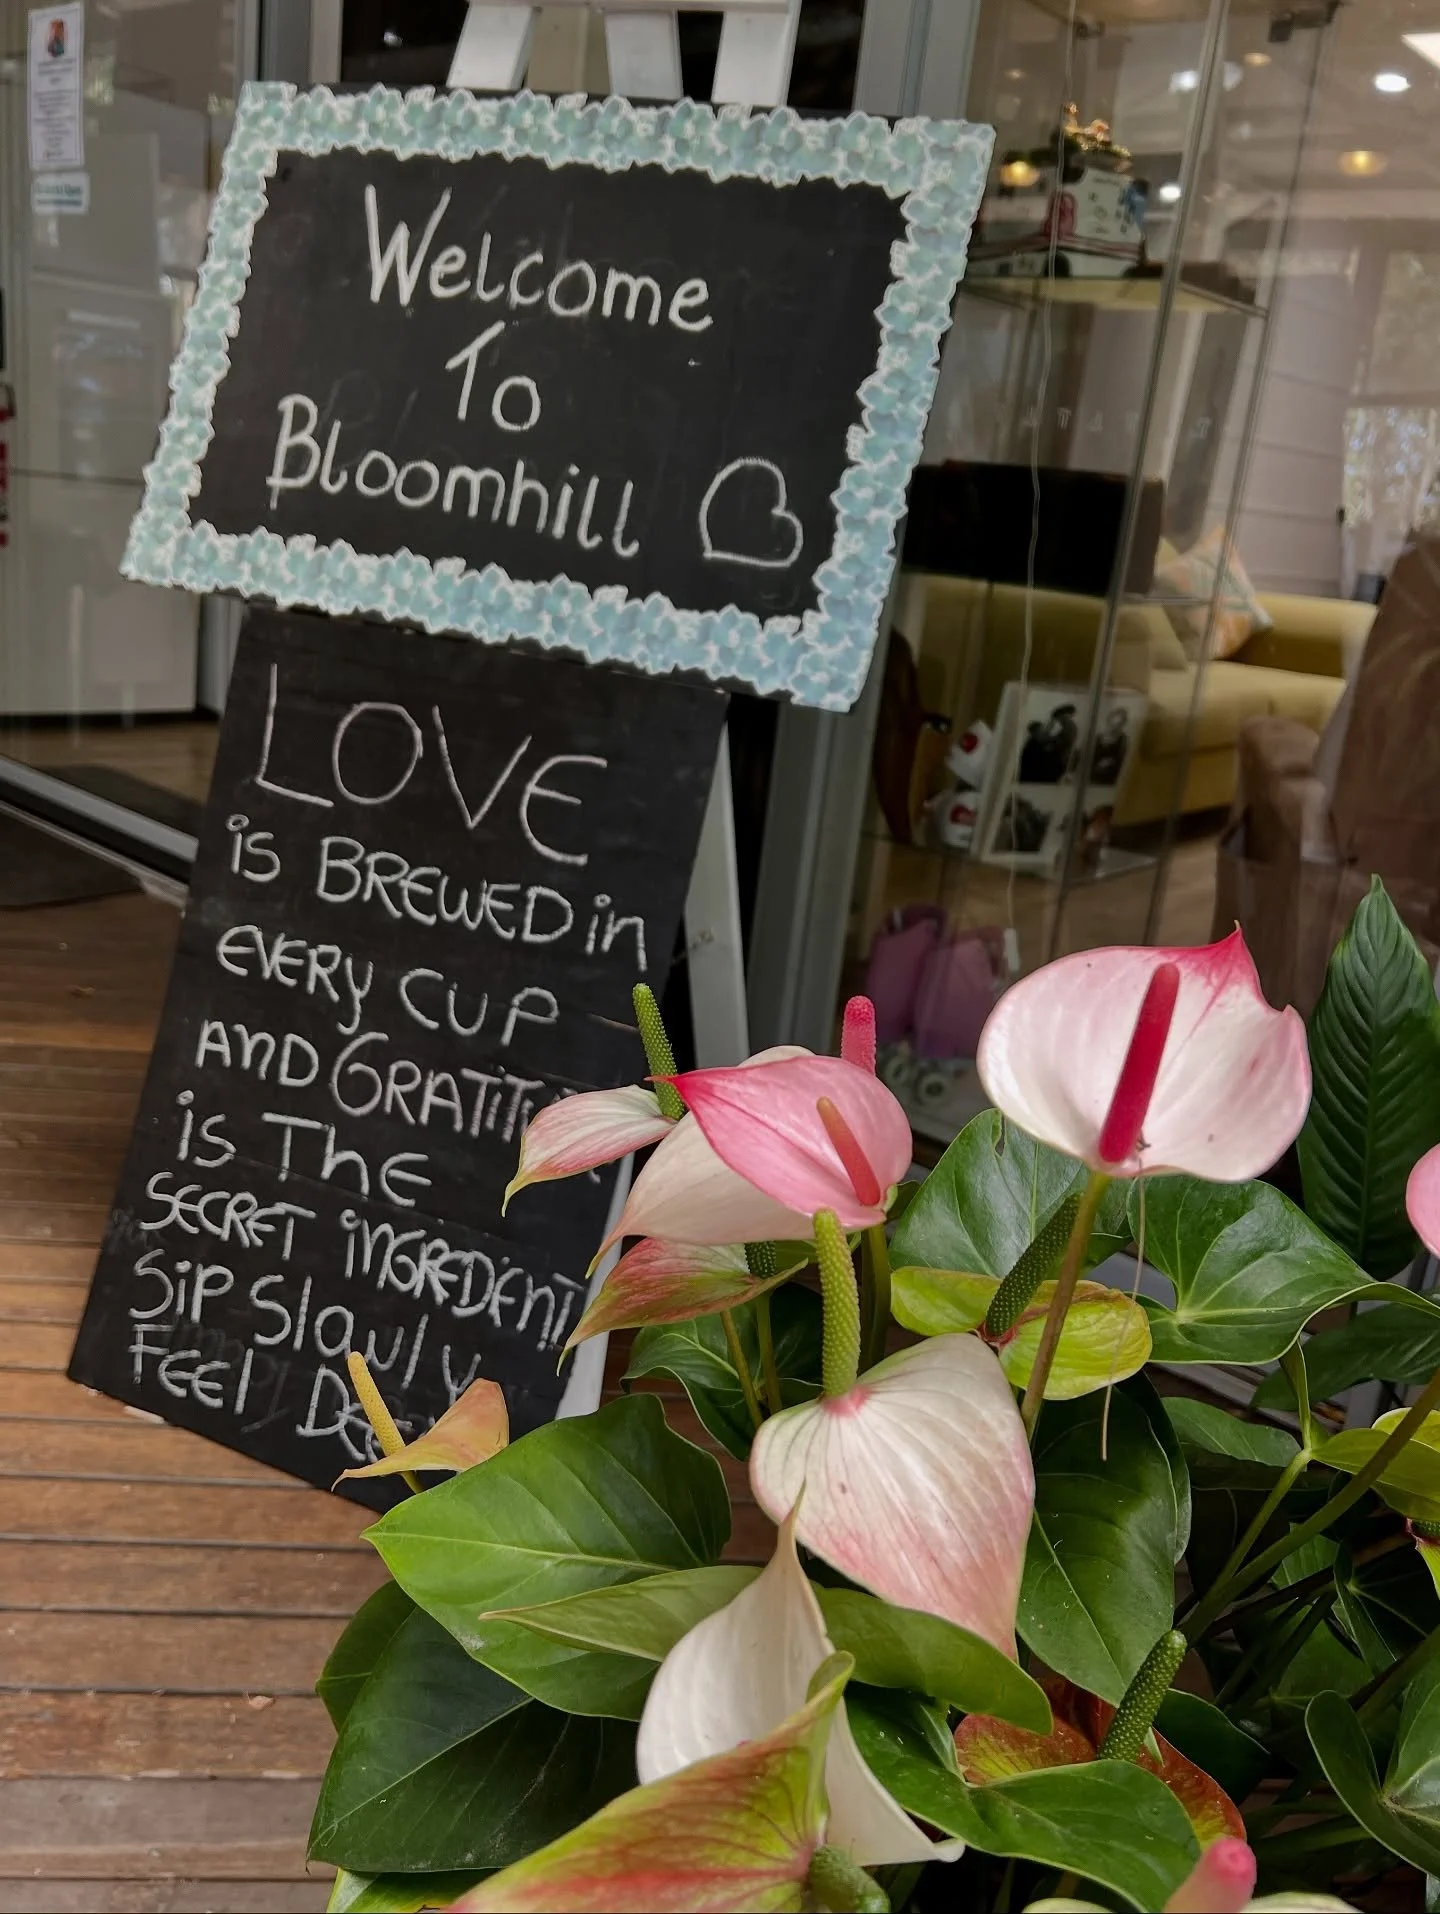 Welcome
To
Bloomhill
LOVE
is BREWED in
EVERY CUP
AND GRATITU
is The
SECRET iNGREDiENT
Sip Slowly
FEEl DEE